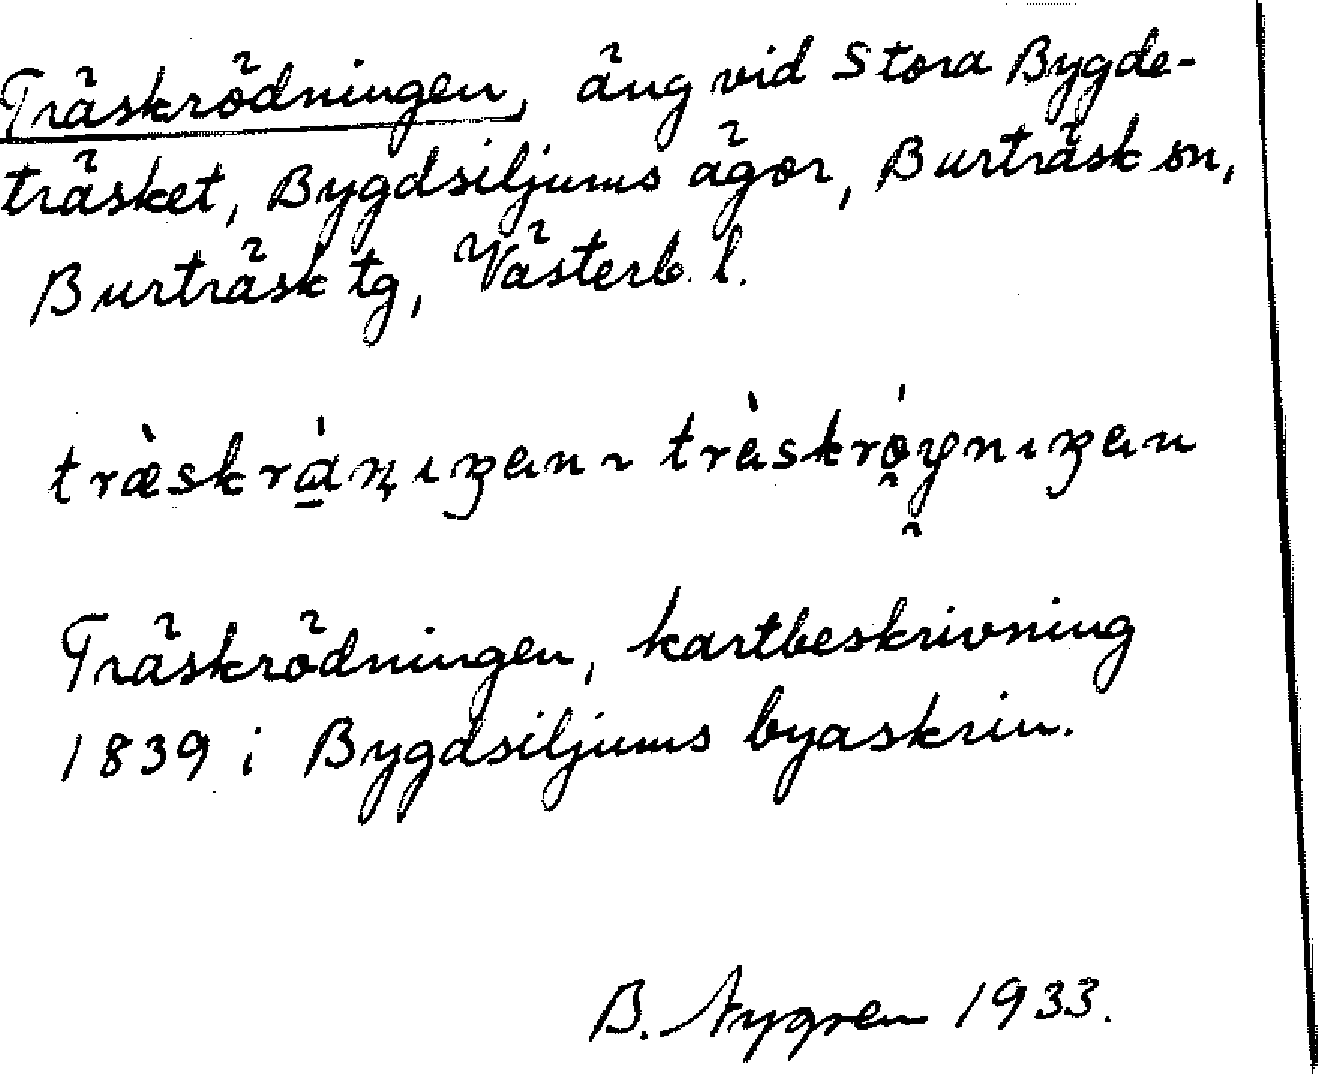 Träskrödningen, äng vid Stora Bygde-
träsket, Bygdsiljums ägor, Burträsk sn,
Burträsk tg, Västerb. l.
Träskrödningen, kartbeskrivning
1839 i Bygdsiljums byaskrin.
B. Nygren 1933.